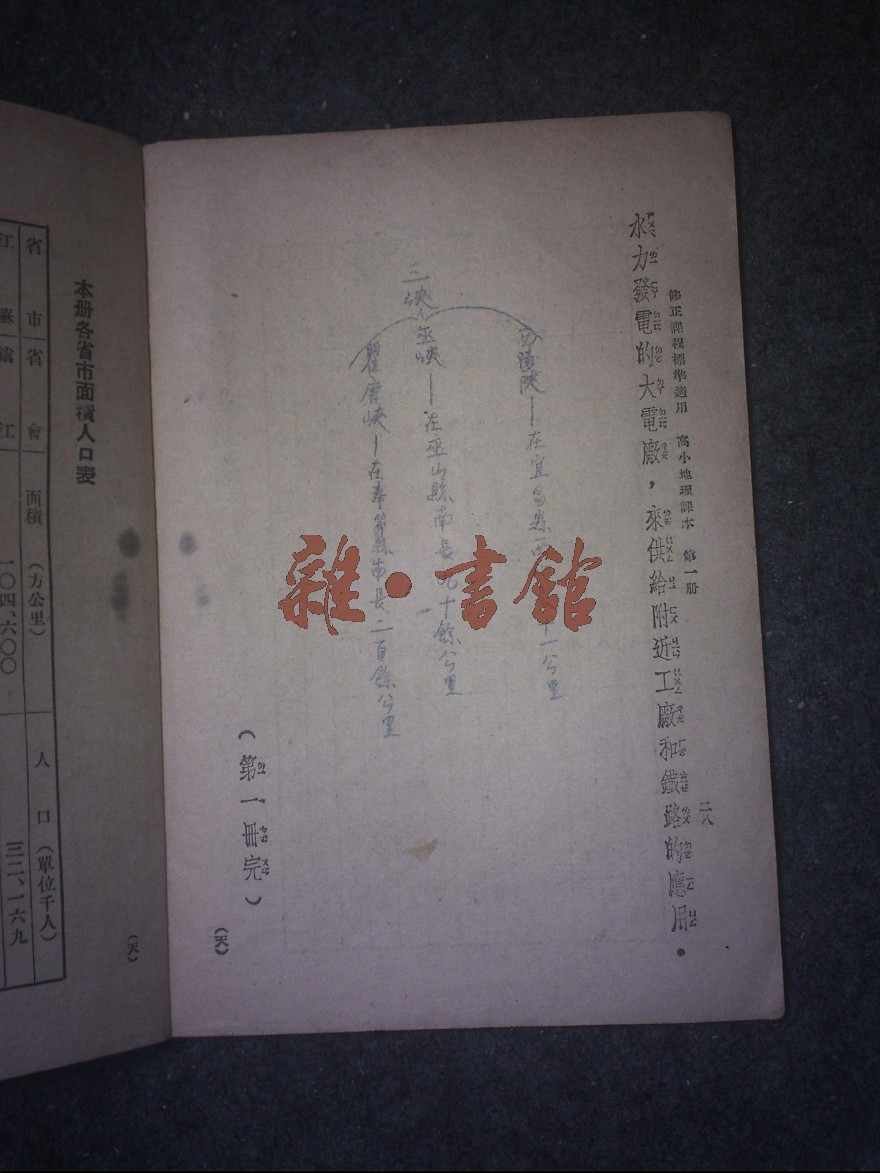 修正課程標準適用　高小地理課本　第一册
二八
水力發電的大電廠，來供給附近工廠和鐵路的應用．
西陵峽—在宜昌縣西
十一公里
三峽
巫峽—在巫山縣南長九十餘公里
瞿唐峽—在奉節縣南長二百餘公里
（第一冊完）
（天）
本册各省市面積人口表
省市　省會　面積（方公里）　人口（單位千人）
江蘇　鎮江　一〇四、六〇〇　三二、一六九
（天）
雜·書館